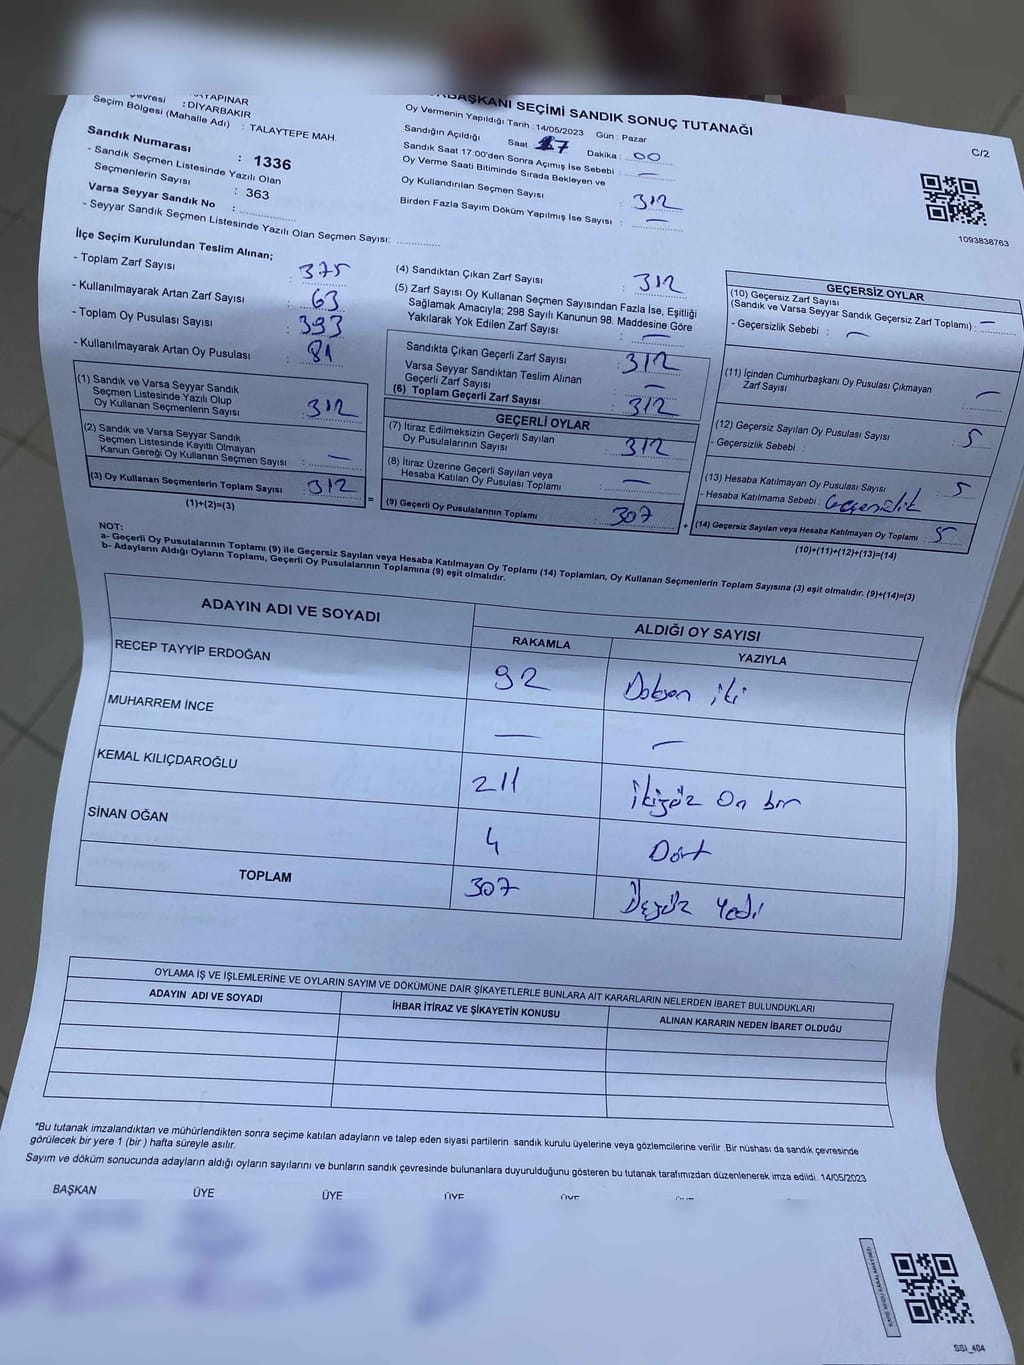 BAŞKANI SEÇİMİ SANDIK SONUÇ TUTANAĞI
C/2
YAPINAR
: DİYARBAKIR
Seçim Bölgesi (Mahalle Adı) : TALAYTEPE MAH.
Sandık Numarası : 1336
- Sandık Seçmen Listesinde Yazılı Olan
Seçmenlerin Sayısı : 363
Varsa Seyyar Sandık No :
- Seyyar Sandık Seçmen Listesinde Yazılı Olan Seçmen Sayısı:
Oy Vermenin Yapıldığı Tarih : 14/05/2023 Gün : Pazar
Sandığın Açıldığı Saat 17 Dakika : 00
Sandık Saat 17:00'den Sonra Açımış İse Sebebi : —
Oy Verme Saati Bitiminde Sırada Bekleyen ve
Oy Kullandırılan Seçmen Sayısı : 312
Birden Fazla Sayım Döküm Yapılmış İse Sayısı : —
1093838763
İlçe Seçim Kurulundan Teslim Alınan;
- Toplam Zarf Sayısı : 375
- Kullanılmayarak Artan Zarf Sayısı : 63
- Toplam Oy Pusulası Sayısı : 393
- Kullanılmayarak Artan Oy Pusulası : 81
(1) Sandık ve Varsa Seyyar Sandık
Seçmen Listesinde Yazılı Olup
Oy Kullanan Seçmenlerin Sayısı : 312
(2) Sandık ve Varsa Seyyar Sandık
Seçmen Listesinde Kayıtlı Olmayan
Kanun Gereği Oy Kullanan Seçmen Sayısı : —
(3) Oy Kullanan Seçmenlerin Toplam Sayısı : 312
(1)+(2)=(3)
=
(4) Sandıktan Çıkan Zarf Sayısı : 312
(5) Zarf Sayısı Oy Kullanan Seçmen Sayısından Fazla İse, Eşitliği
Sağlamak Amacıyla; 298 Sayılı Kanunun 98. Maddesine Göre
Yakılarak Yok Edilen Zarf Sayısı : —
Sandıkta Çıkan Geçerli Zarf Sayısı : 312
Varsa Seyyar Sandıktan Teslim Alınan
Geçerli Zarf Sayısı : —
(6) Toplam Geçerli Zarf Sayısı : 312
GEÇERLİ OYLAR
(7) İtiraz Edilmeksizin Geçerli Sayılan
Oy Pusulalarının Sayısı : 312
(8) İtiraz Üzerine Geçerli Sayılan veya
Hesaba Katılan Oy Pusulası Toplamı : —
(9) Geçerli Oy Pusulalarının Toplamı : 307
+
GEÇERSİZ OYLAR
(10) Geçersiz Zarf Sayısı
(Sandık ve Varsa Seyyar Sandık Geçersiz Zarf Toplamı) : —
- Geçersizlik Sebebi : —
(11) İçinden Cumhurbaşkanı Oy Pusulası Çıkmayan
Zarf Sayısı : —
(12) Geçersiz Sayılan Oy Pusulası Sayısı : 5
- Geçersizlik Sebebi :
(13) Hesaba Katılmayan Oy Pusulası Sayısı 5
- Hesaba Katılmama Sebebi : Geçersizlik
(14) Geçersiz Sayılan veya Hesaba Katılmayan Oy Toplamı : 5
(10)+(11)+(12)+(13)=(14)
NOT:
a- Geçerli Oy Pusulalarının Toplamı (9) ile Geçersiz Sayılan veya Hesaba Katılmayan Oy Toplamı (14) Toplamları, Oy Kullanan Seçmenlerin Toplam Sayısına (3) eşit olmalıdır. (9)+(14)=(3)
b- Adayların Aldığı Oyların Toplamı, Geçerli Oy Pusulalarının Toplamına (9) eşit olmalıdır.
ADAYIN ADI VE SOYADI
ALDIĞI OY SAYISI
RAKAMLA YAZIYLA
RECEP TAYYİP ERDOĞAN 92 Doksan iki
MUHARREM İNCE — —
KEMAL KILIÇDAROĞLU 211 İkiyüz On bir
SİNAN OĞAN 4 Dört
TOPLAM 307 Üçyüz Yedi
OYLAMA İŞ VE İŞLEMLERİNE VE OYLARIN SAYIM VE DÖKÜMÜNE DAİR ŞİKAYETLERLE BUNLARA AİT KARARLARIN NELERDEN İBARET BULUNDUKLARI
ADAYIN ADI VE SOYADI İHBAR İTİRAZ VE ŞİKAYETİN KONUSU ALINAN KARARIN NEDEN İBARET OLDUĞU
*Bu tutanak imzalandıktan ve mühürlendikten sonra seçime katılan adayların ve talep eden siyasi partilerin sandık kurulu üyelerine veya gözlemcilerine verilir .Bir nüshası da sandık çevresinde
görülecek bir yere 1 (bir ) hafta süreyle asılır.
Sayım ve döküm sonucunda adayların aldığı oyların sayılarını ve bunların sandık çevresinde bulunanlara duyurulduğunu gösteren bu tutanak tarafımızdan düzenlenerek imza edildi. 14/05/2023
BAŞKAN ÜYE ÜYE ÜYE ÜYE ÜYE ÜYE
KARE KODU KARALAMAYINIZ!
SSI_404